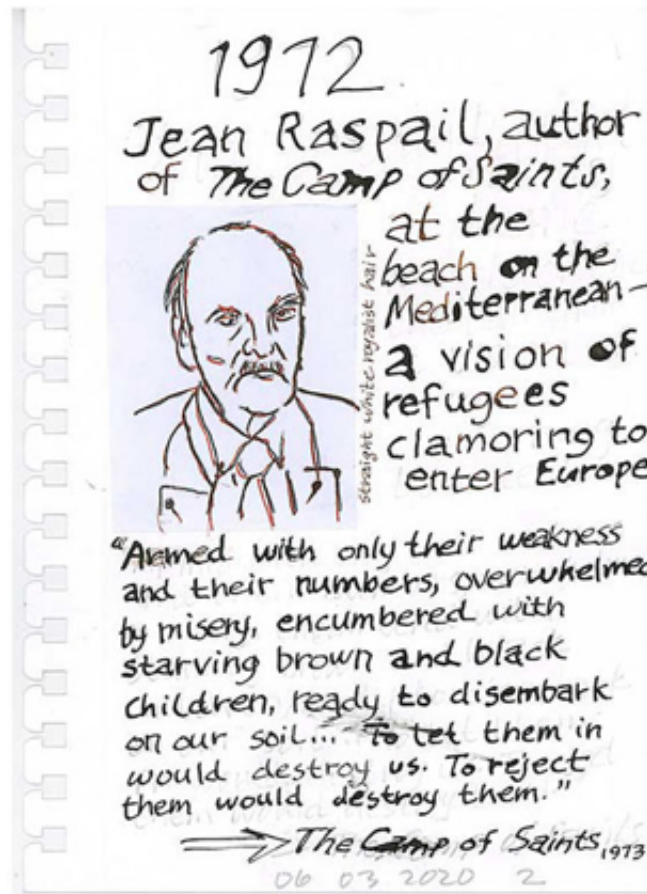 1972
Jean Raspail, author
of The Camp of Saints,
at the
beach on the
Mediterranean-
a vision of
refugees
clamoring to
enter Europe
straight white royalist hair
"Armed with only their weakness
and their numbers, overwhelmed
by misery, encumbered with
starving brown and black
children, ready to disembark
on our soil... To let them in
would destroy us. To reject
them would destroy them."
The Camp of Saints, 1973
06 03 2020 2